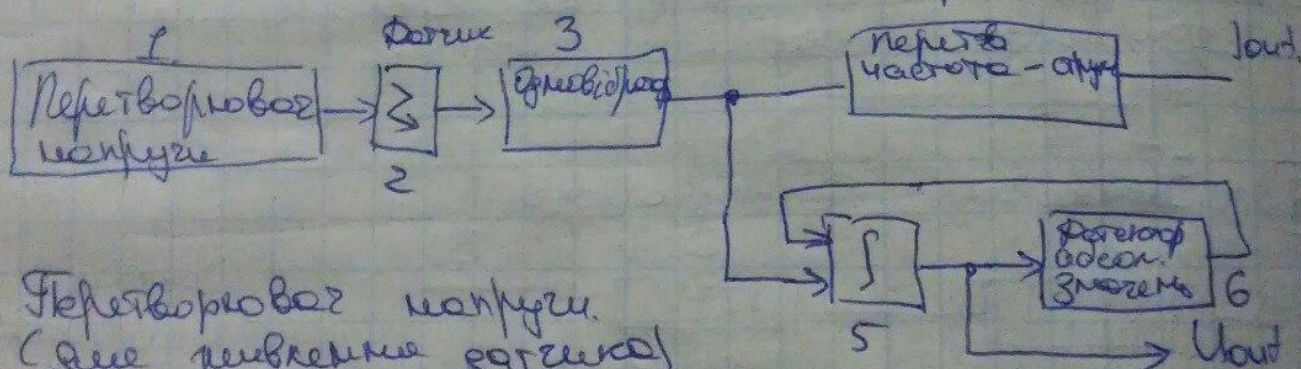 1
Перетворювач
напруги
Датчик
2
3
Одновібрат
перетв
частота - струм
Iout.
∫
5
Детектор
абсол.
значень
6
Uout
Перетворювач напруги.
(для живлення датчика)